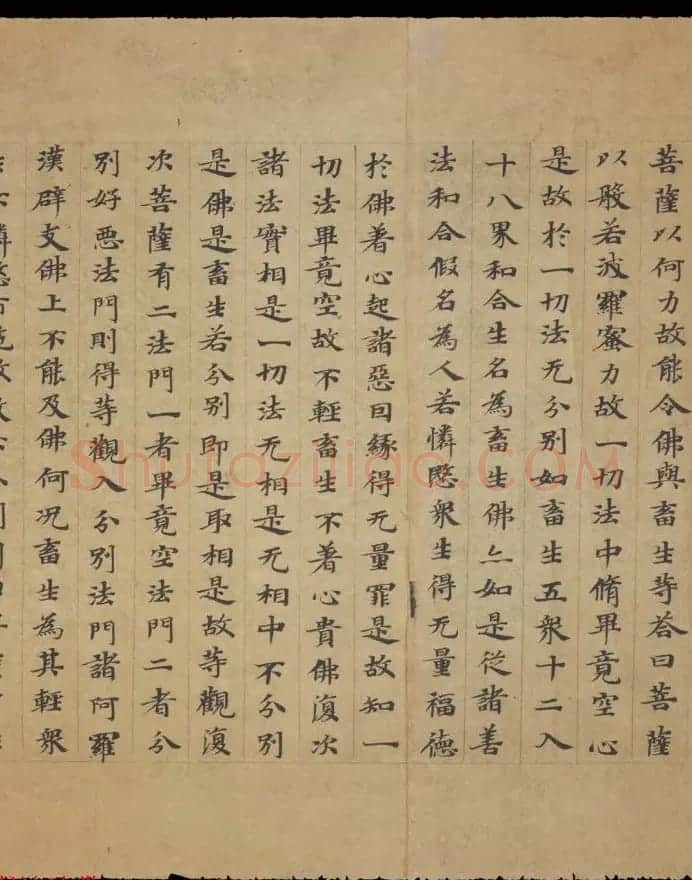 菩薩以何力故能令佛與畜生等荅曰菩薩
以般若波羅蜜力故一切法中脩畢竟空心
是故於一切法无分别如畜生五衆十二入
十八界和合生名為畜生佛亦如是從諸善
法和合假名為人若憐愍衆生得无量福德
於佛著心起諸惡因緣得无量罪是故知一
切法畢竟空故不輕畜生不著心貴佛復次
諸法實相是一切法无相是无相中不分别
是佛是畜生若分别即是取相是故等觀復
次菩薩有二法門一者畢竟空法門二者分
别好惡法門則得等觀入分别法門諸阿羅
漢辟支佛上不能及佛何况畜生為其輕衆
Shufaziliao.COM